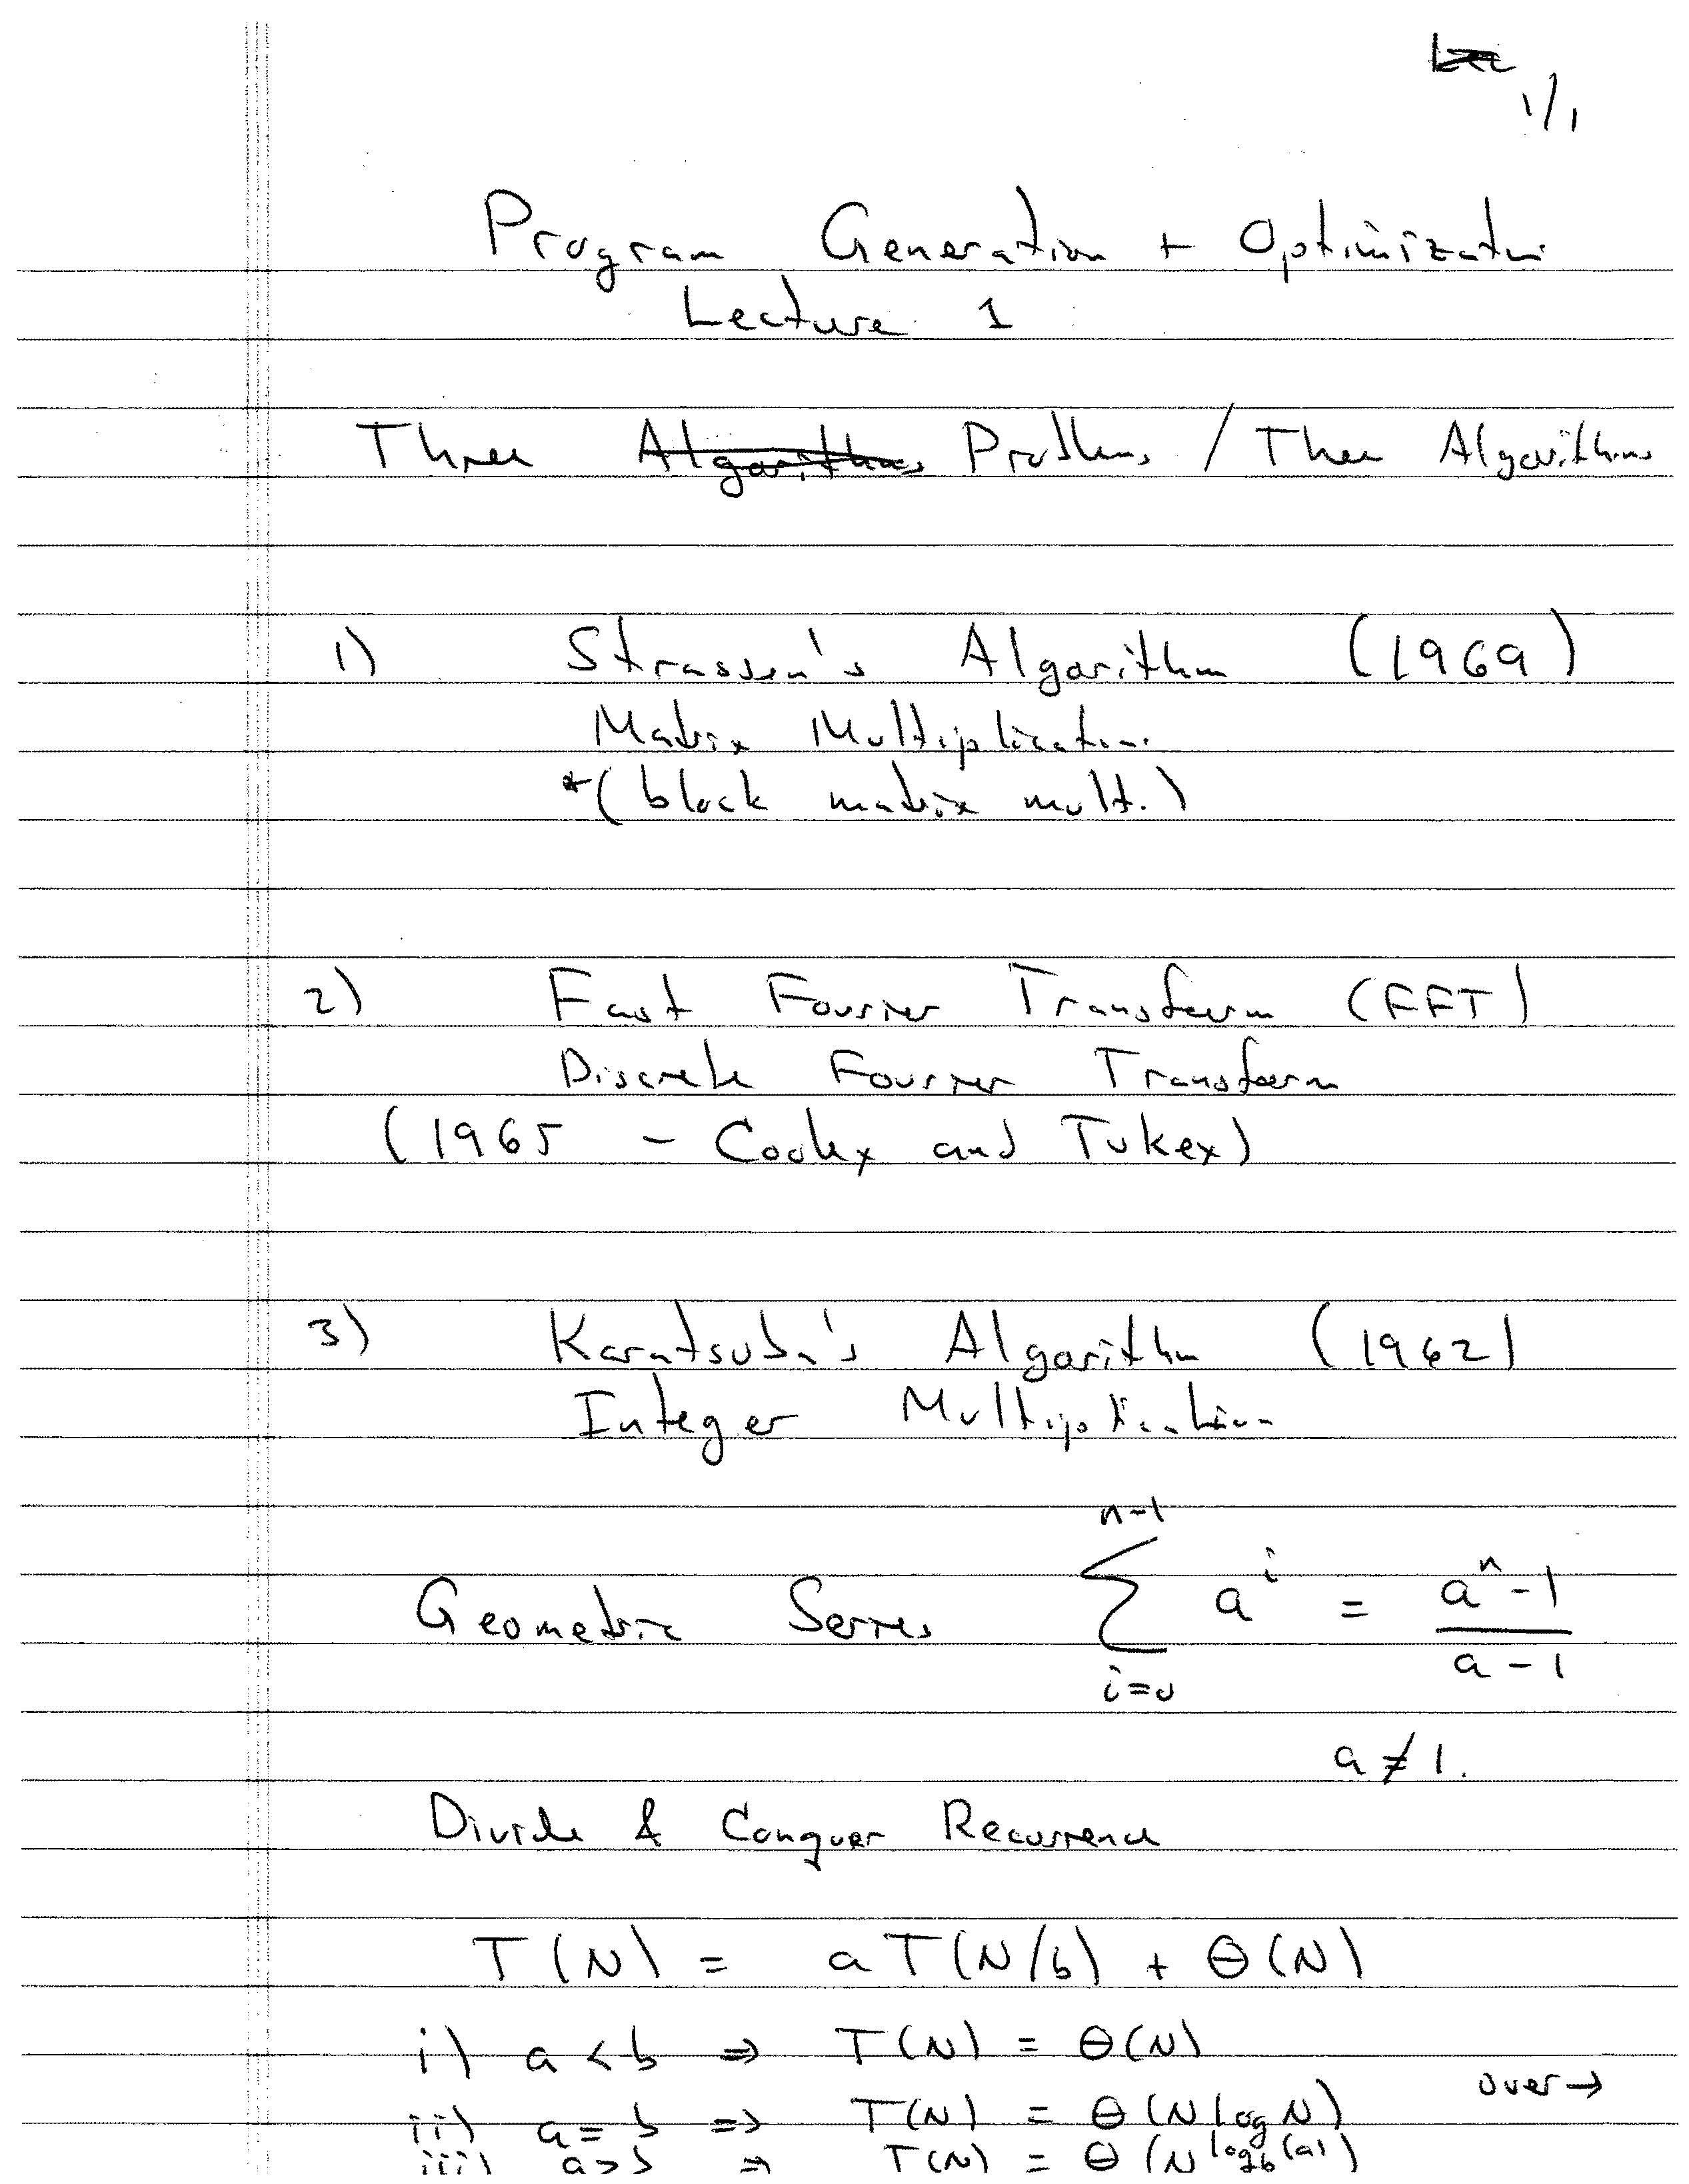 Lec
1/1
Program Generation + Optimization
Lecture 1
Three Algorithms Problems / Three Algorithms
1) Strassen's Algorithm (1969)
Matrix Multiplication
*(block matrix mult.)
2) Fast Fourier Transform (FFT)
Discrete Fourier Transform
(1965 - Cooley and Tukey)
3) Karatsuba's Algorithm (1962)
Integer Multiplication
Geometric Series ∑_{i=0}^{n-1} a^i = (a^n - 1)/(a - 1)
a ≠ 1.
Divide & Conquer Recurrence
T(N) = aT(N/b) + Θ(N)
i) a < b ⇒ T(N) = Θ(N)
over →
ii) a = b ⇒ T(N) = Θ(N log N)
iii) a > b ⇒ T(N) = Θ(N^{log_b(a)})